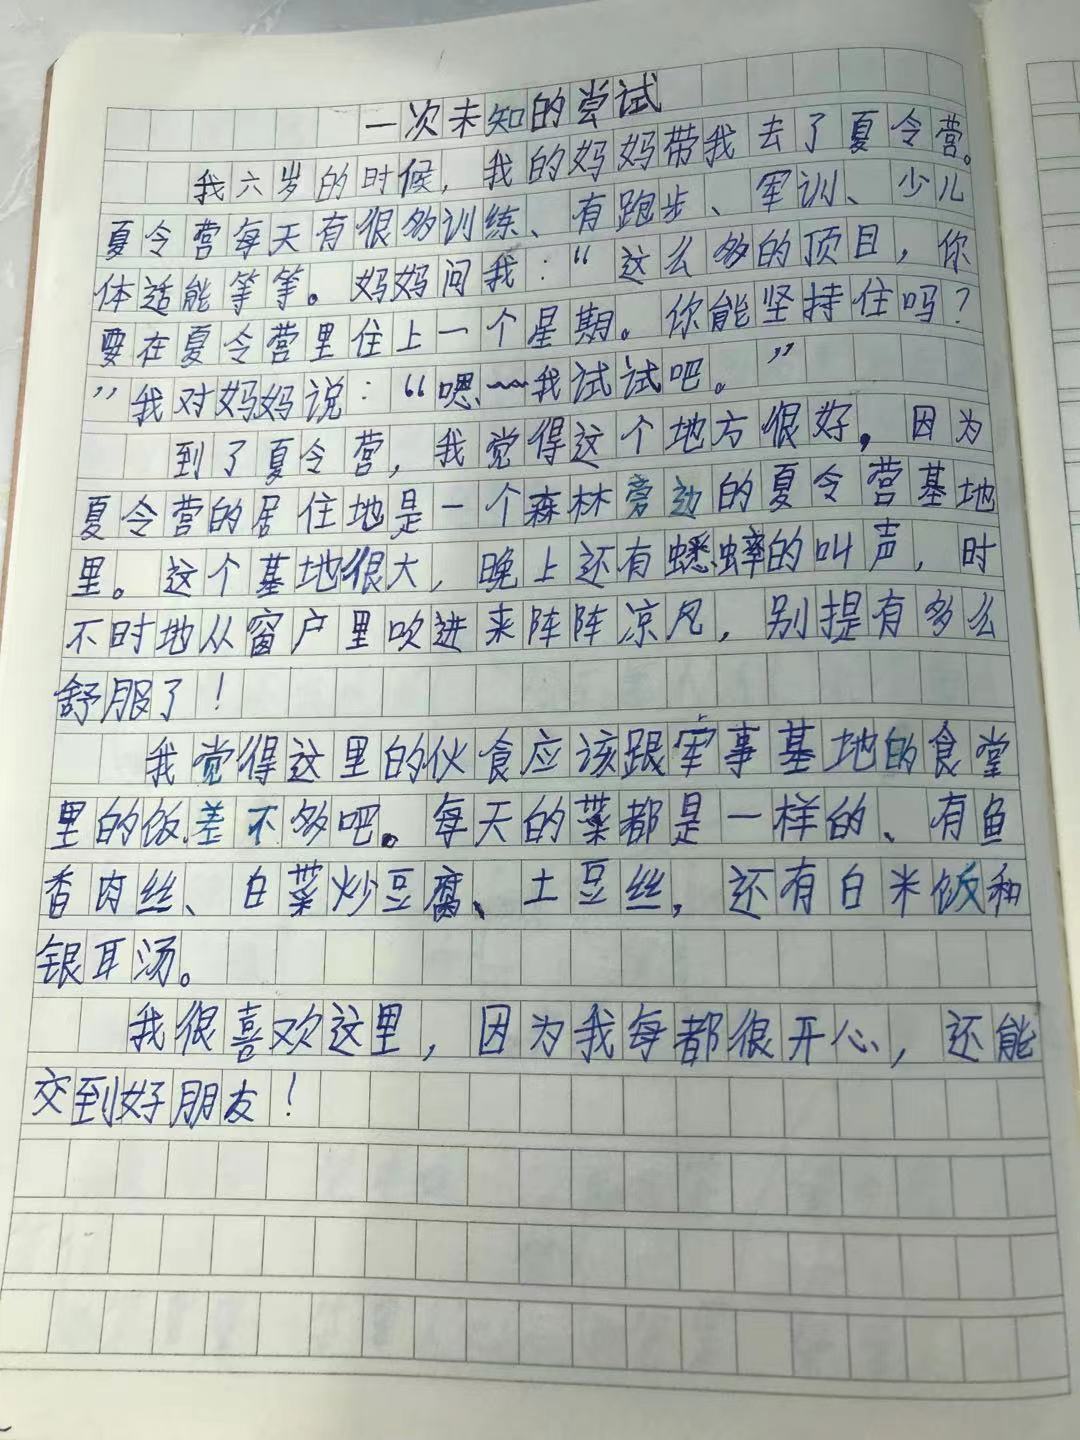 一次未知的尝试
我六岁的时候，我的妈妈带我去了夏令营。
夏令营每天有很多训练、有跑步、军训、少儿
体适能等等。妈妈问我：“这么多的项目，你
要在夏令营里住上一个星期。你能坚持住吗？
”我对妈妈说：“嗯~~我试试吧。”
到了夏令营，我觉得这个地方很好，因为
夏令营的居住地是一个森林旁边的夏令营基地
里。这个基地很大，晚上还有蟋蟀的叫声，时
不时地从窗户里吹进来阵阵凉风，别提有多么
舒服了！
我觉得这里的伙食应该跟军事基地的食堂
里的饭差不多吧。每天的菜都是一样的、有鱼
香肉丝、白菜炒豆腐、土豆丝，还有白米饭和
银耳汤。
我很喜欢这里，因为我每都很开心，还能
交到好朋友！